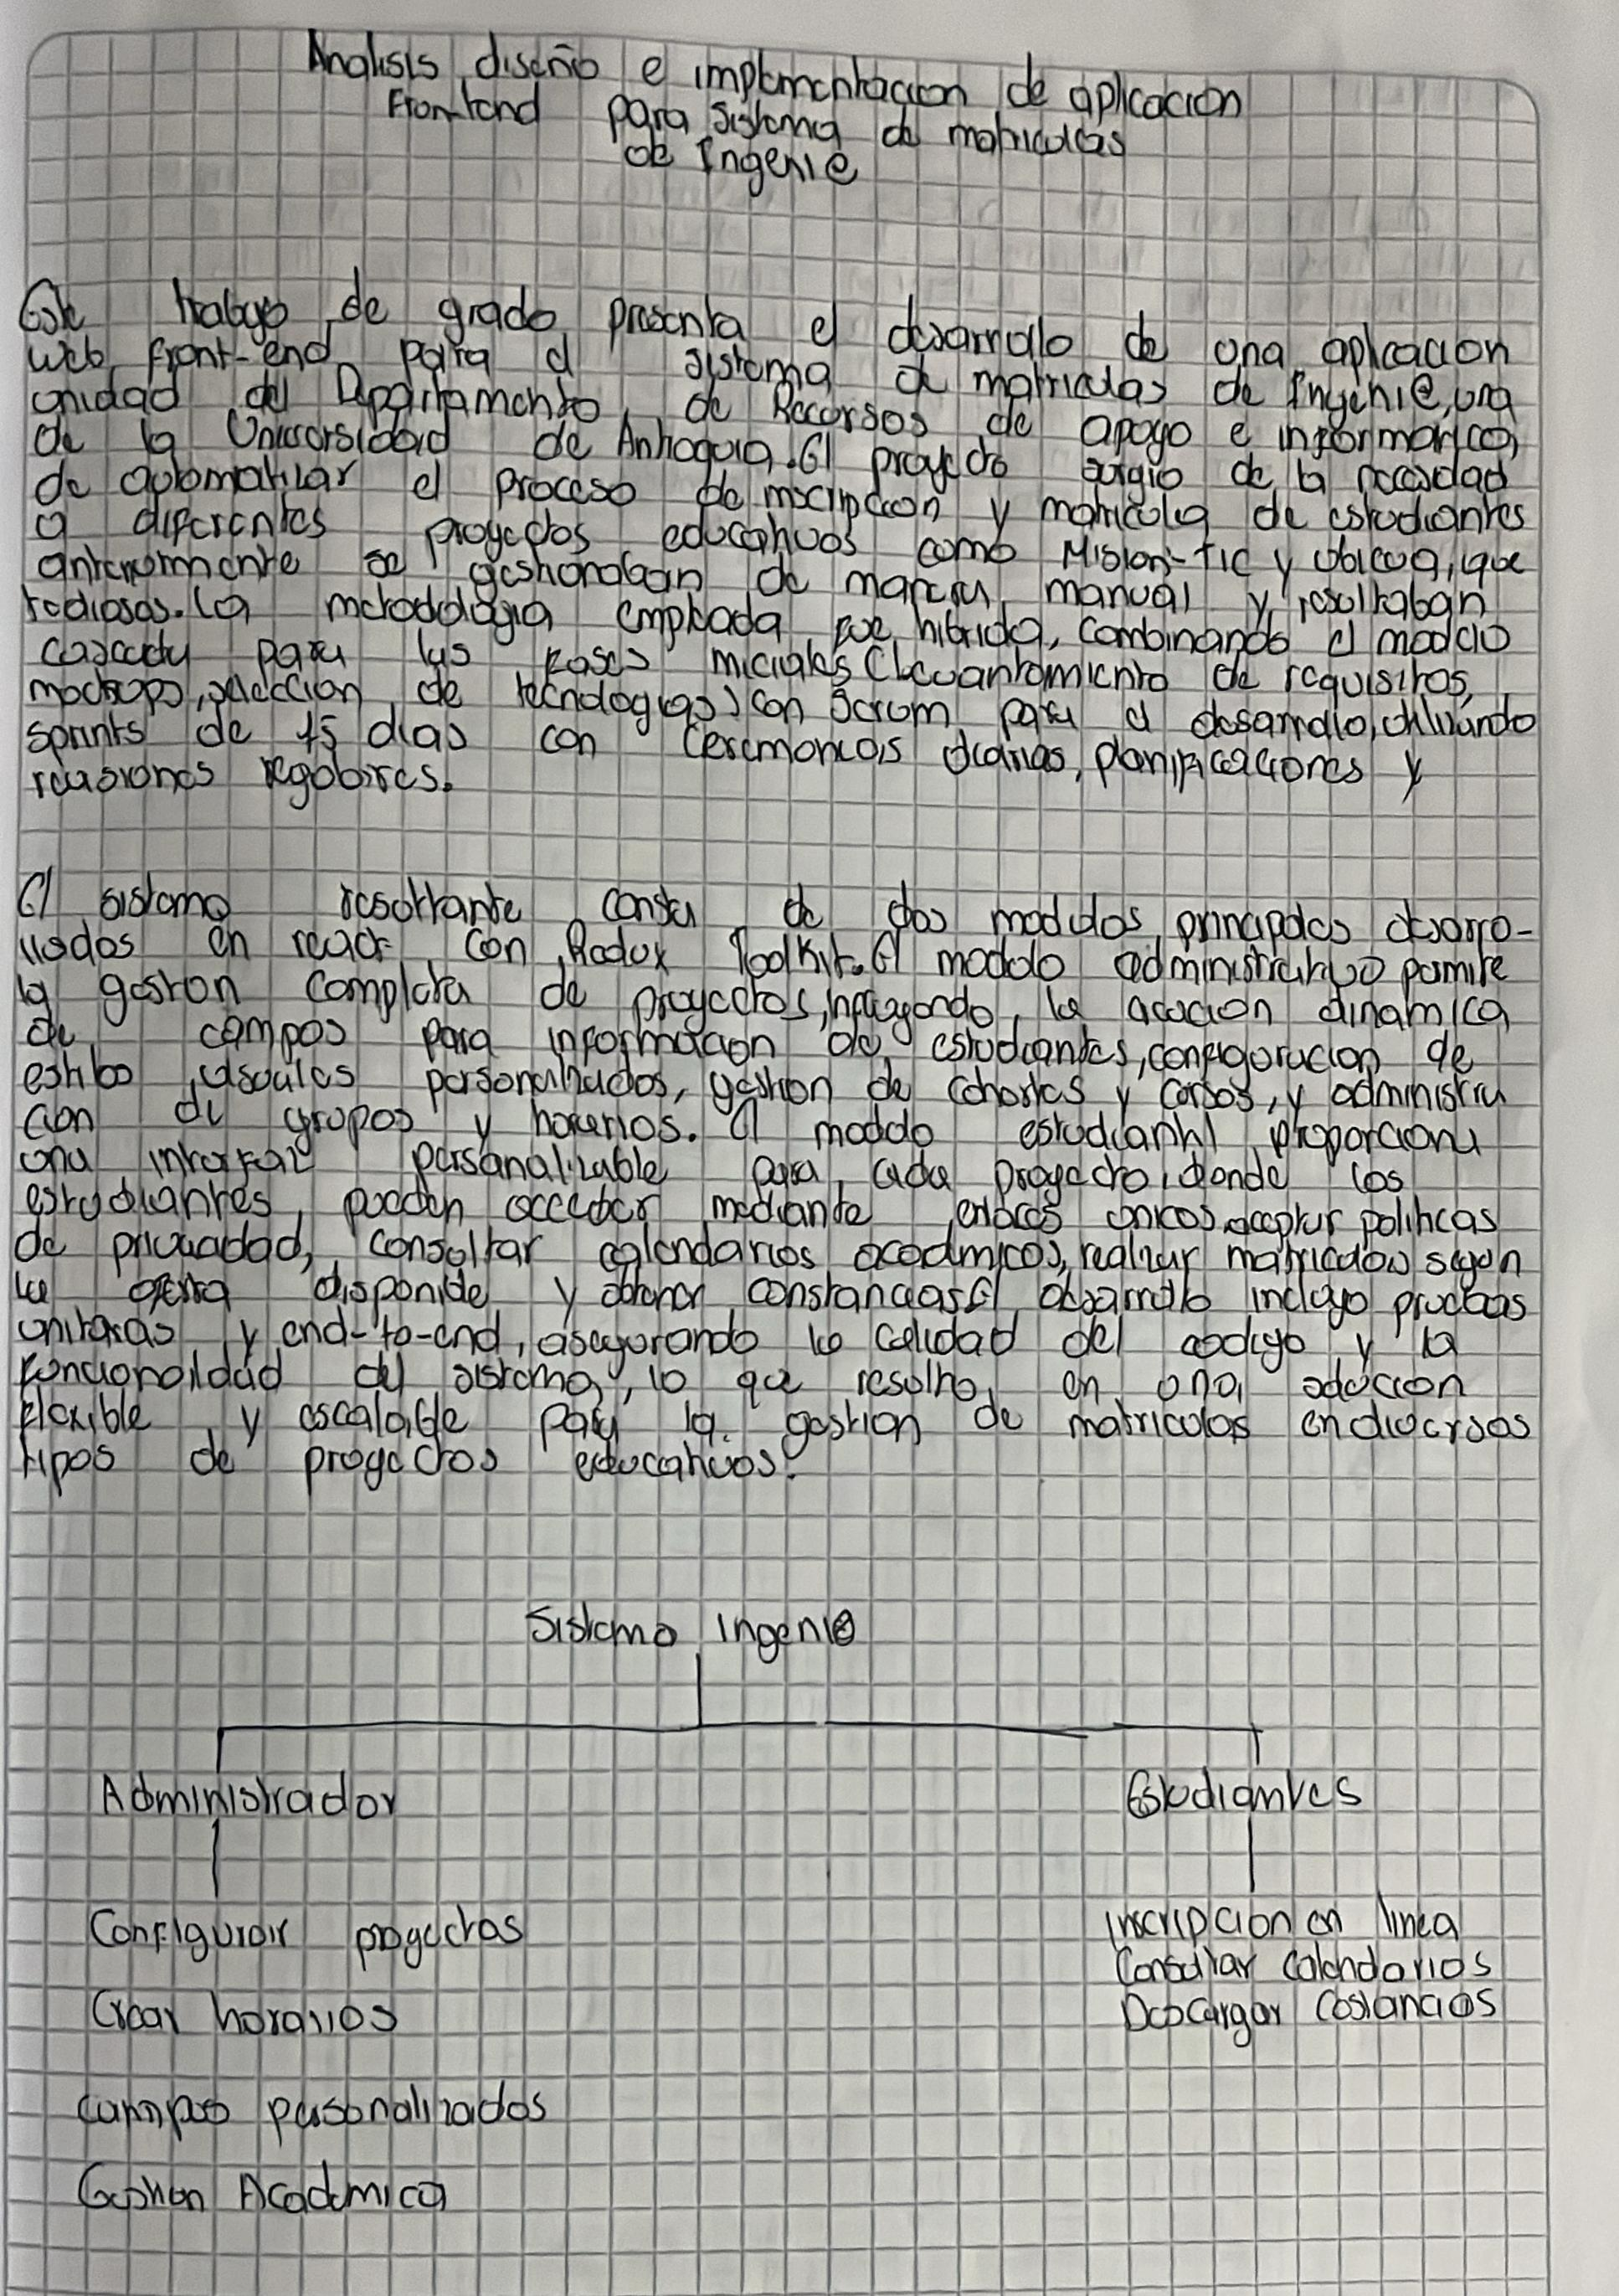 Analisis, diseño e implementacion de aplicacion
Front-end para sistema de matriculas
de Ingeni@
Este trabajo de grado presenta el desarrollo de una aplicacion
web front-end para el sistema de matriculas de Ingeni@, una
unidad del Departamento de Recursos de apoyo e informatica,
de la Universidad de Antioquia. El proyecto surgio de la necesidad
de automatizar el proceso de inscripcion y matricula de estudiantes
a diferentes proyectos educativos como Mision-TIC y Ubicua, que
anteriormente se gestionaban de manera manual y resultaban
tediosas. La metodologia empleada fue hibrida, combinando el modelo
cascada para las fases iniciales (levantamiento de requisitos,
mockups, seleccion de tecnologias) con Scrum para el desarrollo, utilizando
sprints de 15 dias con ceremonias diarias, planificaciones y
revisiones regulares.
El sistema resultante consta de dos modulos principales desarro-
llados en react con Redux Toolkit. El modulo administrativo permite
la gestion completa de proyectos, incluyendo la creacion dinamica
de campos para informacion de estudiantes, configuracion de
estilos visuales personalizados, gestion de cohortes y cursos, y administra
cion de grupos y horarios. El modulo estudiantil proporciona
una interfaz personalizable para cada proyecto, donde los
estudiantes pueden acceder mediante enlaces unicos, aceptar politicas
de privacidad, consultar calendarios academicos, realizar matriculas segun
la oferta disponible y obtener constancias. El desarrollo incluyo pruebas
unitarias y end-to-end, asegurando la calidad del codigo y la
funcionalidad del sistema, lo que resulto en una solucion
flexible y escalable para la gestion de matriculas en diversos
tipos de proyectos educativos.
Sistema Ingeni@
Administrador Estudiantes
Configurar proyectos
Crear horarios
campos personalizados
Gestion Academica
Inscripcion en linea
Consultar Calendarios
Descargar Costancias